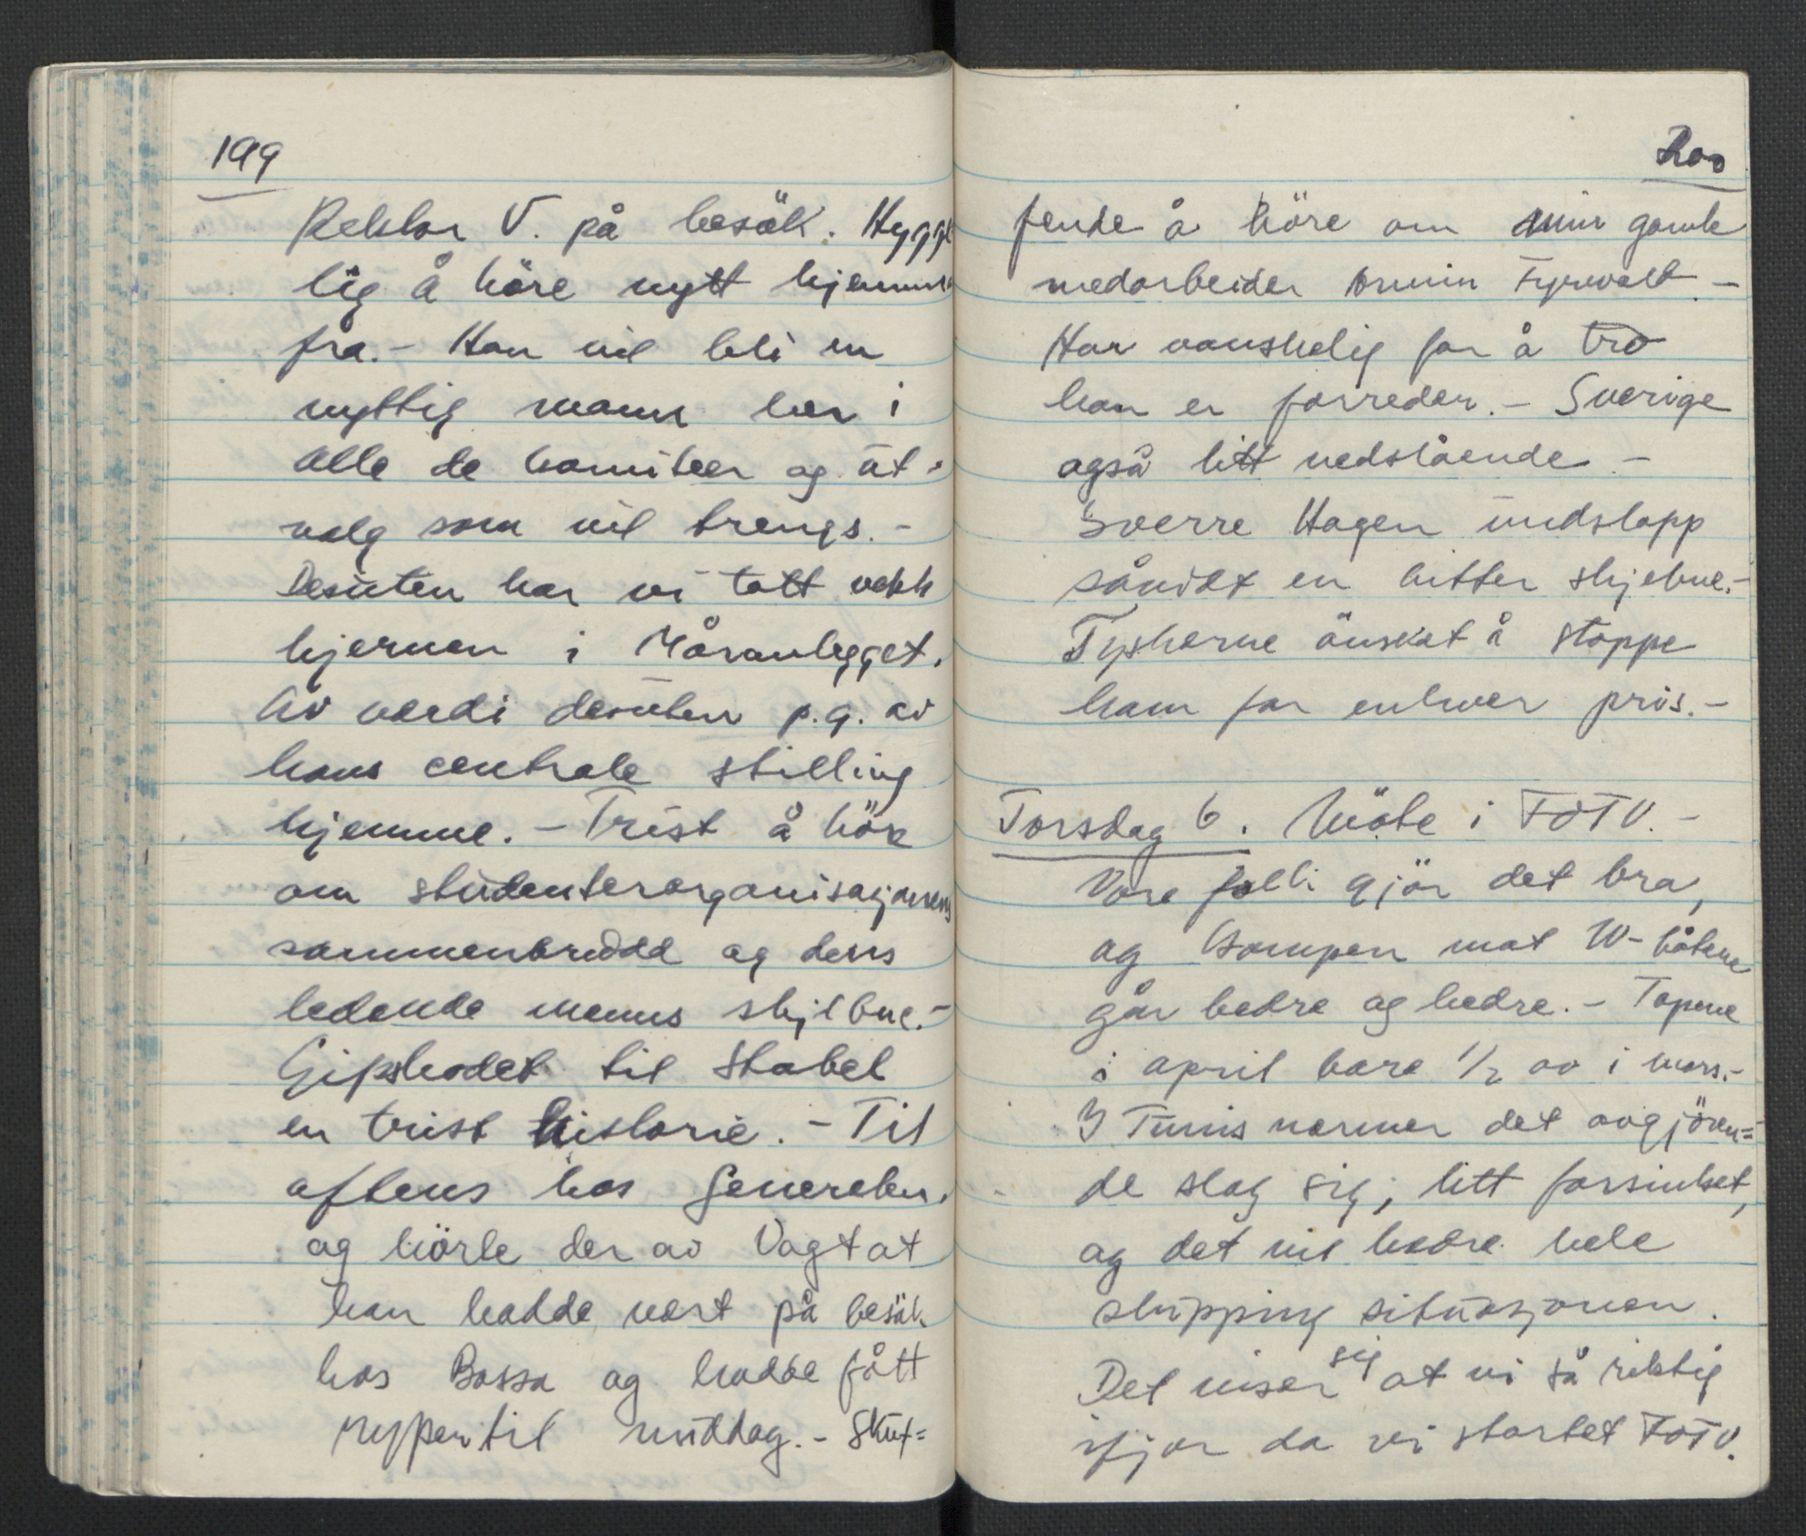 199
Rektor V. på besök. Hygge
lig å höre nytt hjemme
fra. - Han vil bli en
nyttig mann her i
alle de komiteer og ut-
valg som vil trengs. -
Desuten har vi tatt vekk
hjernen i Måranlegget.
Av verdi desuten p.g. av
hans centrale stilling
hjemme. - Trist å höre
om studenterorganisasjonens
sammenbrudd og dens
ledende menns skjebne. -
Gipshodet til Stabel
en trist historie. - Til
aftens hos Generalen.
og hörte der av Vogt at
han hadde vært på besök
hos Bossa og hadde fått
ryper til middag. - Skuf=
200
fende å höre om min gamle
medarbeider Armin Fyrwald -
Har vanskelig for å tro
han er forreder. - Sverige
også litt nedslående -
Sverre Hagen undslapp
såvidt en bitter skjebne. -
Tyskerne önsket å stoppe
ham for enhver pris. -
Torsdag 6. Möte i FOTV. -
Våre folk gjör det bra,
og kampen mot W-båtene
går bedre og bedre. - Tapene
i april bare 1/2 av i mars. -
I Tunis nærmer det avgjören=
de slag sig, litt forsinket,
og det vil bedre hele
shipping situasjonen.
Det viser sig at vi så riktig
ifjor da vi startet FOTV.